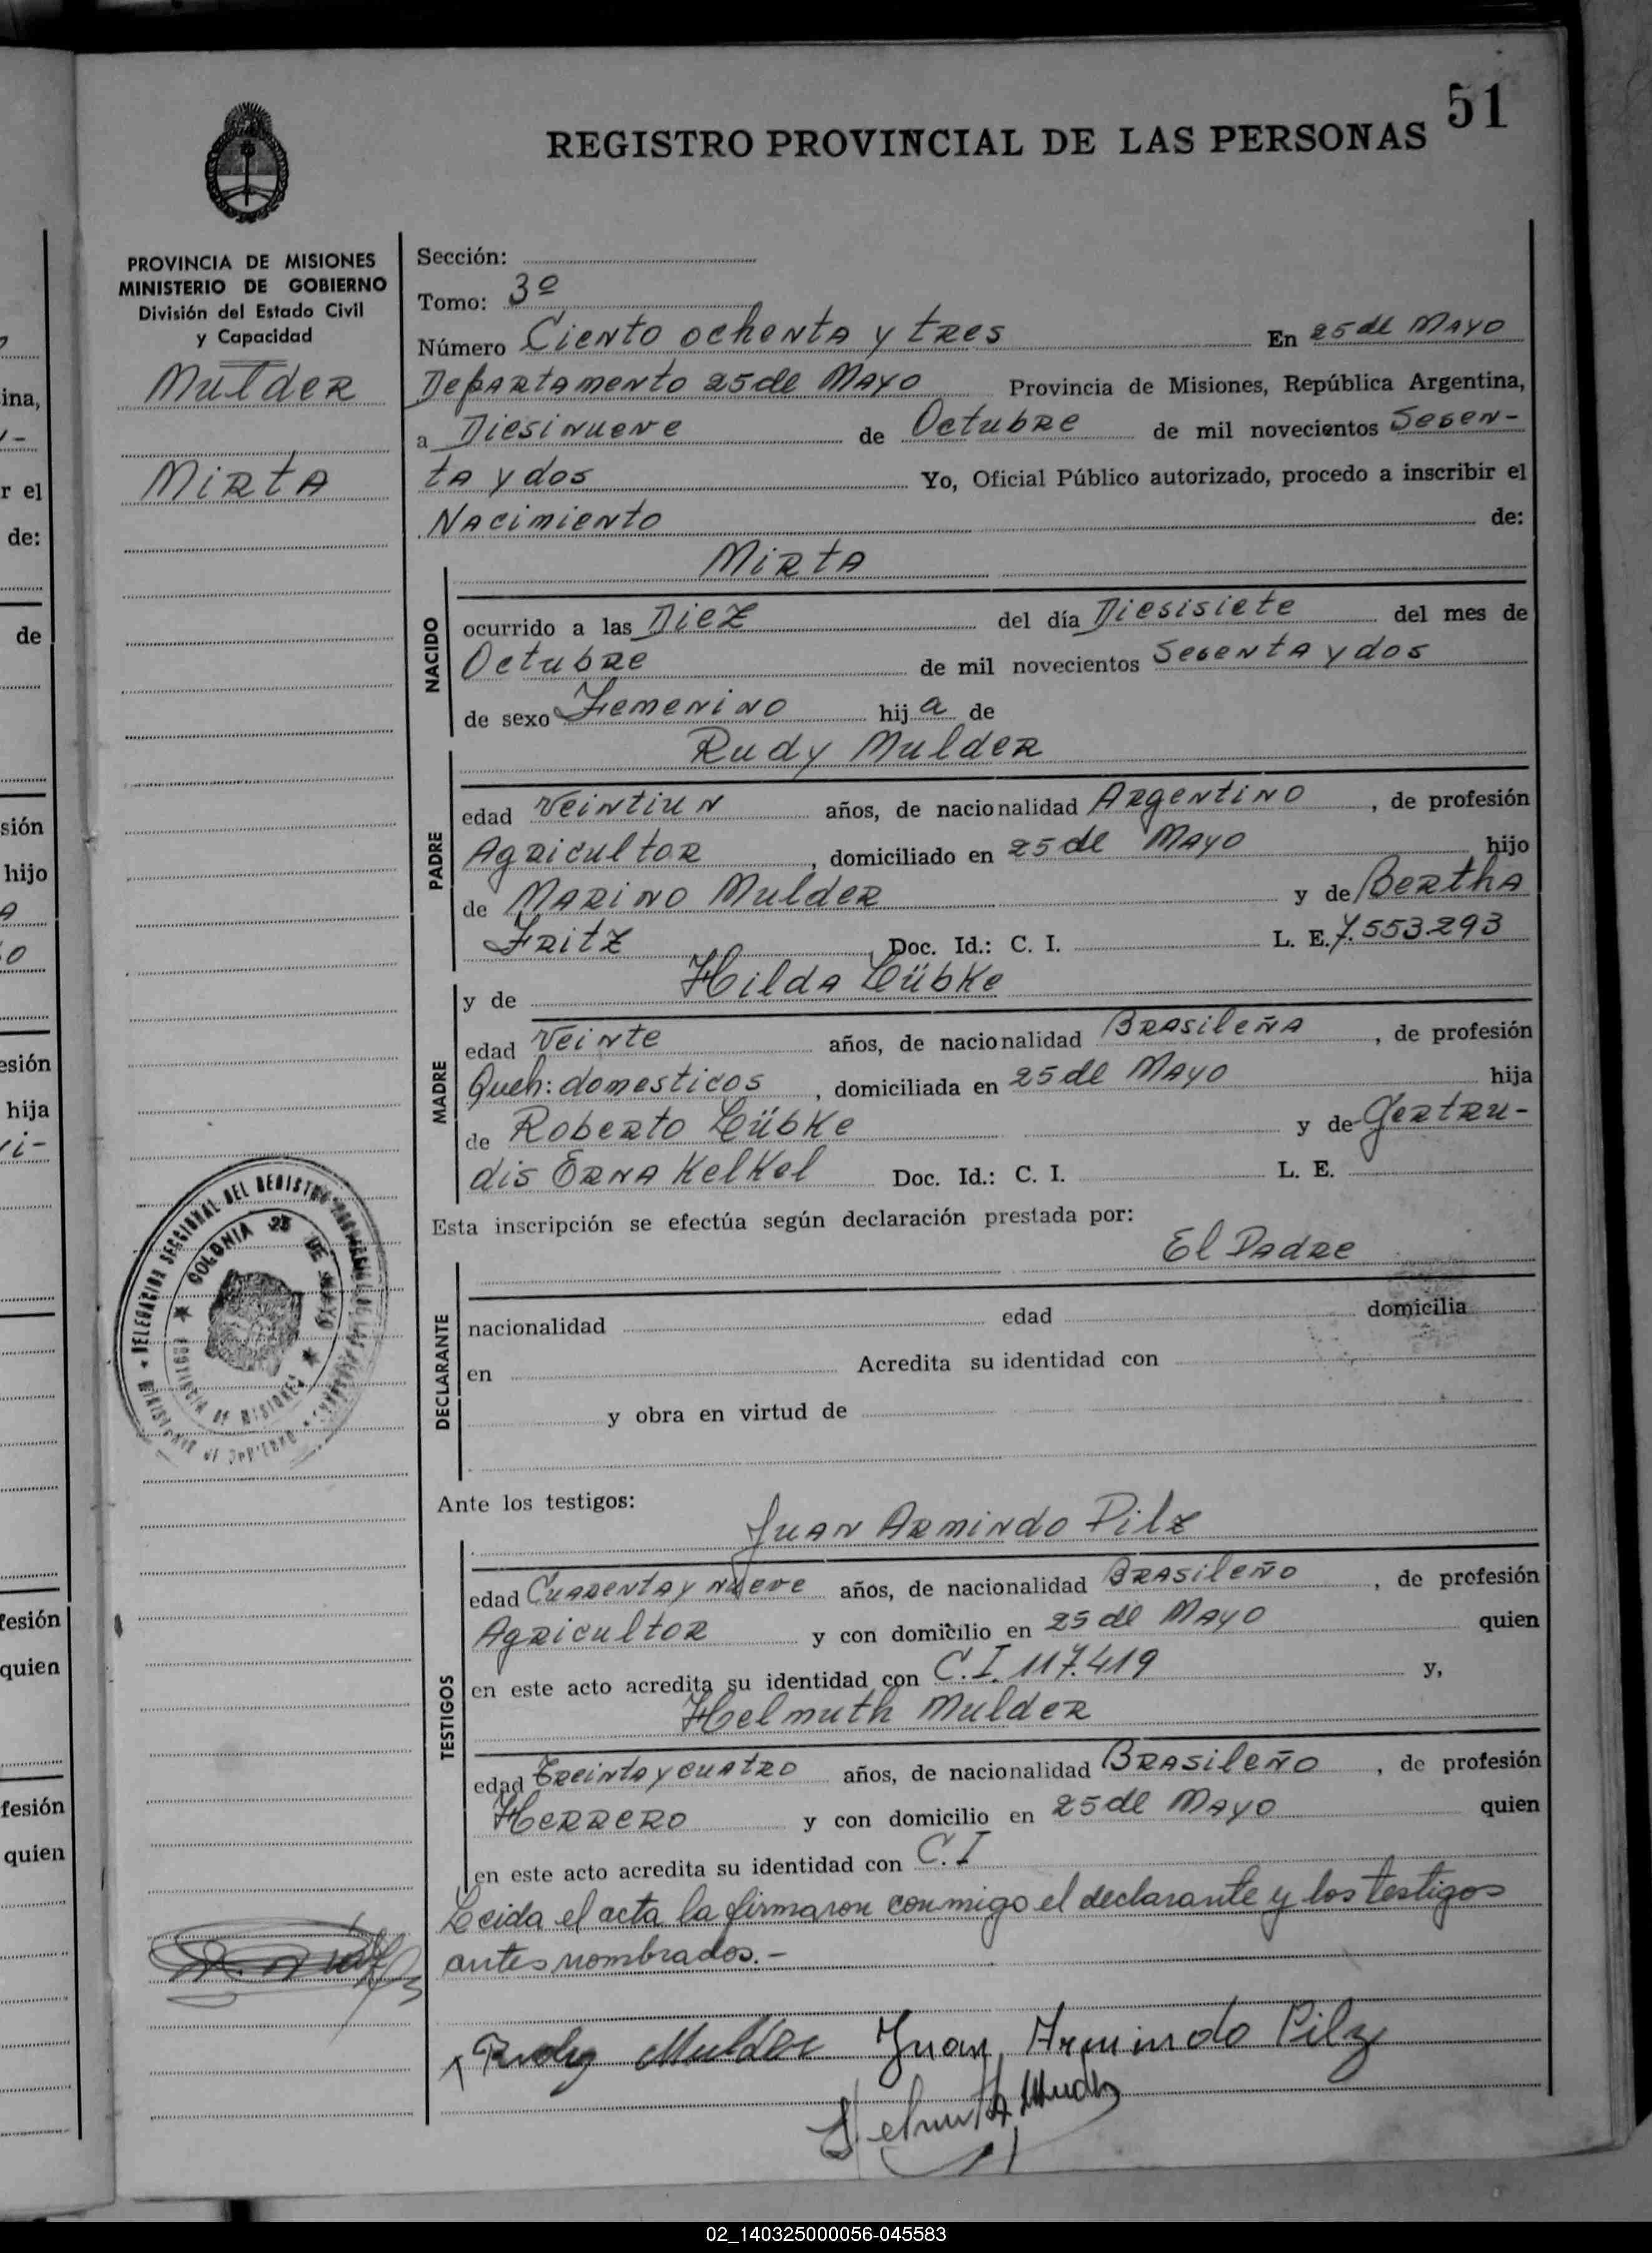 51
REGISTRO PROVINCIAL DE LAS PERSONAS
PROVINCIA DE MISIONES
MINISTERIO DE GOBIERNO
División del Estado Civil
y Capacidad
Mulder
Mirta
Sección:
Tomo: 3º
Número Ciento ochenta y tres En 25 de Mayo
Departamento 25 de Mayo Provincia de Misiones, República Argentina,
a Diesinueve de Octubre de mil novecientos Sesen-
ta y dos Yo, Oficial Público autorizado, procedo a inscribir el
Nacimiento de:
Mirta
NACIDO
ocurrido a las Diez del día Diesisiete del mes de
Octubre de mil novecientos Sesenta y dos
de sexo Femenino hij a de
Rudy Mulder
PADRE
edad Veintiun años, de nacionalidad Argentino, de profesión
Agricultor, domiciliado en 25 de Mayo hijo
de Marino Mulder y de Bertha
Fritz Doc. Id.: C. I. L. E. 7.553.293
y de Hilda Lübke
MADRE
edad Veinte años, de nacionalidad Brasileña, de profesión
Queh: domesticos, domiciliada en 25 de Mayo hija
de Roberto Lübke y de Gertru-
dis Erna Kelkel Doc. Id.: C. I. L. E.
Esta inscripción se efectúa según declaración prestada por:
El Padre
DECLARANTE
nacionalidad edad domicilia
en Acredita su identidad con
y obra en virtud de
Ante los testigos:
Juan Armindo Pilz
TESTIGOS
edad Cuarenta y nueve años, de nacionalidad Brasileño, de profesión
Agricultor y con domicilio en 25 de Mayo quien
en este acto acredita su identidad con C.I. 117.419 y,
Helmuth Mulder
edad Treinta y cuatro años, de nacionalidad Brasileño, de profesión
Herrero y con domicilio en 25 de Mayo quien
en este acto acredita su identidad con C.I
Leida el acta la firmaron conmigo el declarante y los testigos
antes nombrados.-
Rudy Mulder Juan Armindo Pilz
Helmuth
DELEGACION SECCIONAL DEL REGISTRO PROVINCIAL DE LAS PERSONAS
COLONIA 25 DE MAYO
PROVINCIA DE MISIONES
MINISTERIO DE GOBIERNO
ina,
r el
de:
de
sión
hijo
esión
hija
fesión
quien
fesión
quien
02_140325000056-045583